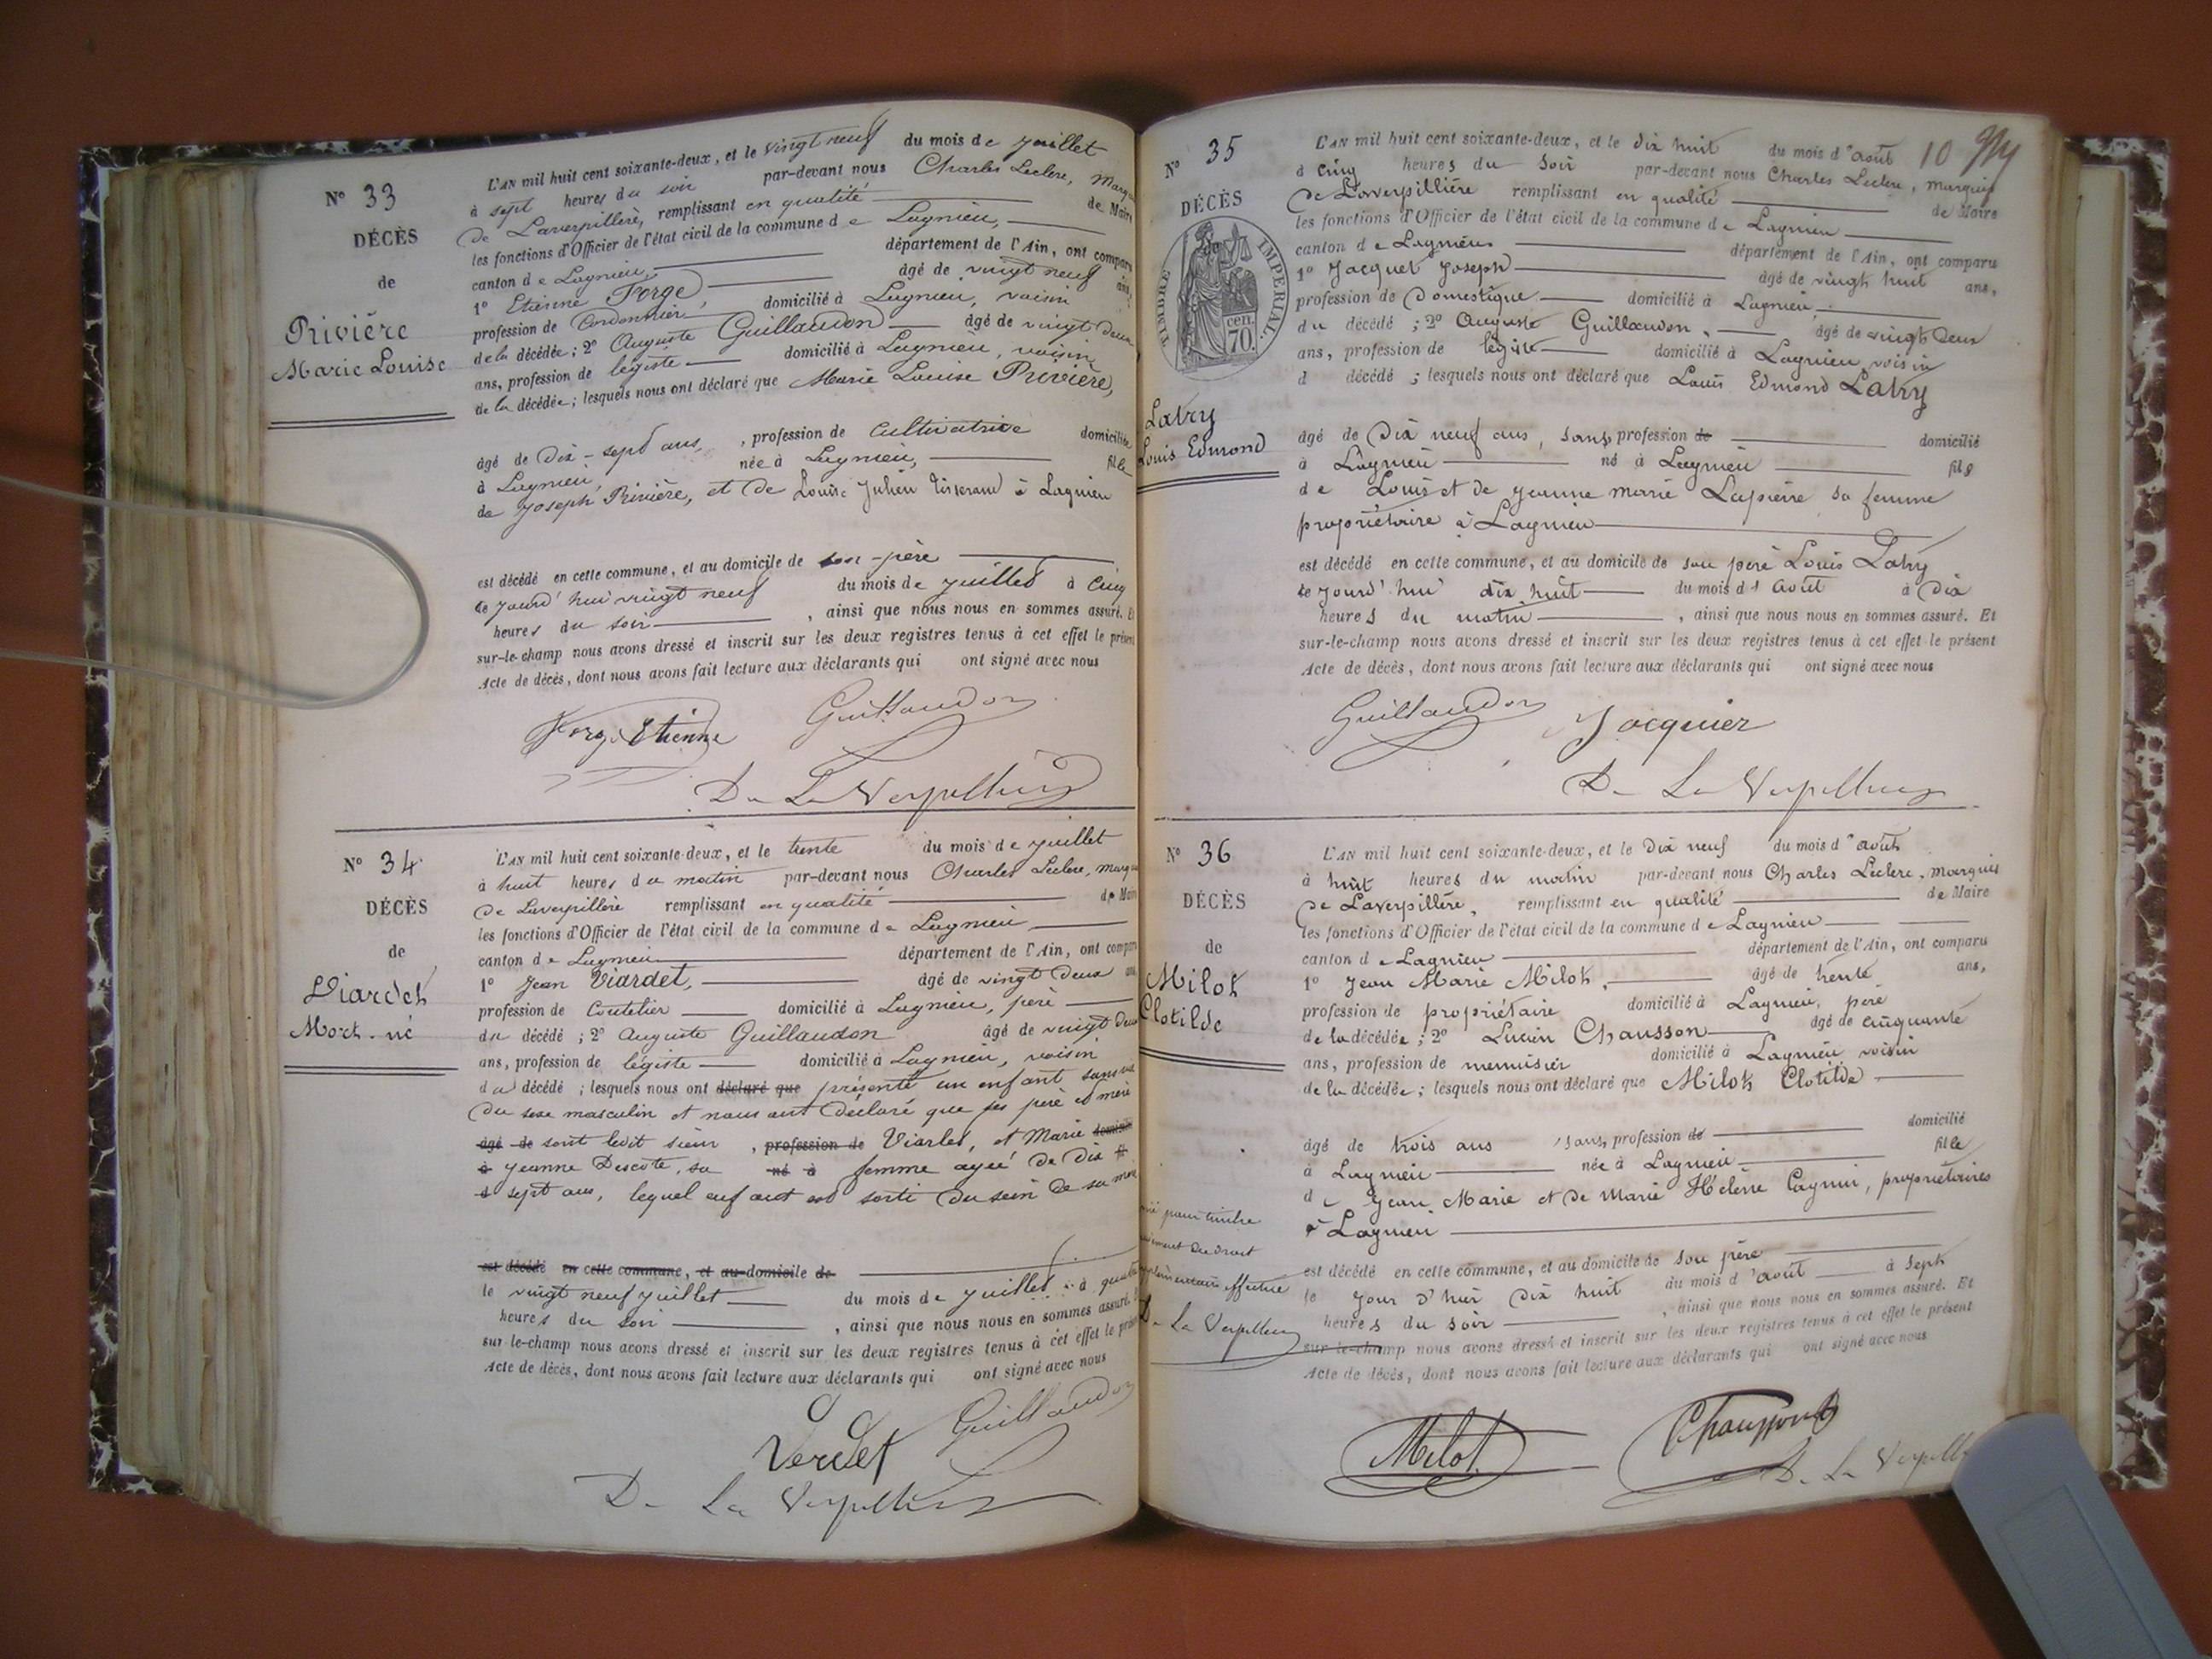 N° 33
DÉCÈS
de
Privière
Marie Louise
L'AN mil huit cent soixante-deux, et le vingt neuf du mois de juillet
à sept heures du soir par-devant nous Charles Leclerc, marquis
de Laverpillière, remplissant en qualité de Maire
les fonctions d'Officier de l'état civil de la commune de Lagnieu,
canton de Lagnieu, département de l'Ain, ont comparu
1° Etienne Forge, âgé de vingt neuf ans,
profession de Cordonnier, domicilié à Lagnieu, voisin
de la décédée; 2° Auguste Guillaudon âgé de vingt deux
ans, profession de légiste domicilié à Lagnieu, voisin
de la décédée; lesquels nous ont déclaré que Marie Louise Privière,
âgé de Dix-sept ans, , profession de Cultivatrice domiciliée
à Lagnieu, née à Lagnieu, fille
de Joseph Privière, et de Louise Julien Tisserand à Lagnieu
est décédé en cette commune, et au domicile de son père
le jourd'hui vingt neuf du mois de juillet à Cinq
heures du soir , ainsi que nous nous en sommes assuré. Et
sur-le-champ nous avons dressé et inscrit sur les deux registres tenus à cet effet le présent
Acte de décès, dont nous avons fait lecture aux déclarants qui ont signé avec nous
Forge Etienne Guillaudon
De La Verpillière
N° 34
DÉCÈS
de
Viardet
Mort-né
L'AN mil huit cent soixante-deux, et le trente du mois de juillet
à huit heures du matin par-devant nous Charles Leclerc, marquis
de Laverpillière remplissant en qualité de Maire
les fonctions d'Officier de l'état civil de la commune de Lagnieu
canton de Lagnieu département de l'Ain, ont comparu
1° Jean Viardet, âgé de vingt deux ans
profession de Coutelier domicilié à Lagnieu, père
du décédé ; 2° Auguste Guillaudon âgé de vingt deux
ans, profession de légiste domicilié à Lagnieu, voisin
du décédé ; lesquels nous ont déclaré que présenté un enfant sans vie
du sexe masculin et nous ont déclaré que ses père et mère
âgé de sont ledit sieur , profession de Viardet, et Marie domicilié
à Jeanne Descote, sa né à femme agée de dix fi
d sept ans, lequel enfant est sorti du sein de sa mère
est décédé en cette commune, et au domicile de
le vingt neuf juillet du mois de juillet à quatre
heures du soir , ainsi que nous nous en sommes assuré. Et
sur-le-champ nous avons dressé et inscrit sur les deux registres tenus à cet effet le présent
Acte de décès, dont nous avons fait lecture aux déclarants qui ont signé avec nous
Verdet Guillaudon
De La Verpillière
10
N° 35
DÉCÈS
de
TIMBRE IMPERIAL.
70.
cen.
Latry
Louis Edmond
L'AN mil huit cent soixante-deux, et le dix huit du mois d'août
à cinq heures du soir par-devant nous Charles Leclerc, marquis
de Laverpillière remplissant en qualité de Maire
les fonctions d'Officier de l'état civil de la commune de Lagnieu
canton de Lagnieu département de l'Ain, ont comparu
1° Jacquet Joseph âgé de vingt huit ans,
profession de Domestique domicilié à Lagnieu,
du décédé ; 2° Auguste Guillaudon, âgé de vingt deux
ans, profession de légiste domicilié à Lagnieu voisin
d décédé ; lesquels nous ont déclaré que Louis Edmond Latry
âgé de Dix neuf ans, sans profession de domicilié
à Lagnieu né à Lagnieu fils
de Louis et de Jeanne Marie Lapierre sa femme
propriétaire à Lagnieu
est décédé en cette commune, et au domicile de son père Louis Latry
le jourd'hui dix huit du mois d'août à dix
heures du matin , ainsi que nous nous en sommes assuré. Et
sur-le-champ nous avons dressé et inscrit sur les deux registres tenus à cet effet le présent
Acte de décès, dont nous avons fait lecture aux déclarants qui ont signé avec nous
Guillaudon Jacquier
De La Verpillière
N° 36
DÉCÈS
de
Milot
Clotilde
pour timbre
du droit
effectué
De La Verpillière
L'AN mil huit cent soixante-deux, et le dix neuf du mois d'août
à huit heures du matin par-devant nous Charles Leclerc, marquis
de Laverpillière, remplissant en qualité de Maire
les fonctions d'Officier de l'état civil de la commune de Lagnieu
canton de Lagnieu département de l'Ain, ont comparu
1° Jean Marie Milot, âgé de trente ans,
profession de propriétaire domicilié à Lagnieu, père
de la décédée ; 2° Lucien Chausson âgé de cinquante
ans, profession de menuisier domicilié à Lagnieu voisin
de la décédée ; lesquels nous ont déclaré que Milot Clotilde
âgé de trois ans , sans profession de domicilié
à Lagnieu née à Lagnieu fille
de Jean Marie et de Marie Hélène Cagnin, propriétaires
à Lagnieu
est décédé en cette commune, et au domicile de son père
le jour d'hier dix huit du mois d'août à sept
heures du soir , ainsi que nous nous en sommes assuré. Et
sur-le-champ nous avons dressé et inscrit sur les deux registres tenus à cet effet le présent
Acte de décès, dont nous avons fait lecture aux déclarants qui ont signé avec nous
Milot Chausson
De La Verpill